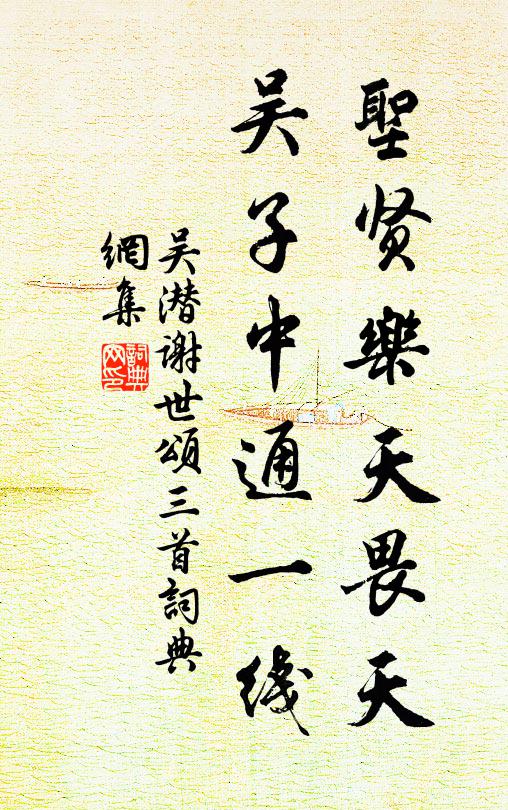 聖贤樂天畏天
吴子中通一线
吴潜谢世頌三首詞典
網集
詞典
网印